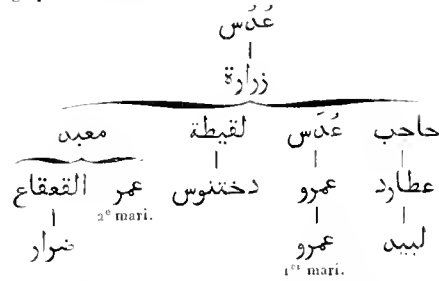 عُدُس
زرارة
حاجب عُدَس لقيطة معبد
عطارد عمرو دختنوس عمر القعقاع
2e mari.
لبيد عمرو ضرار
1er mari.